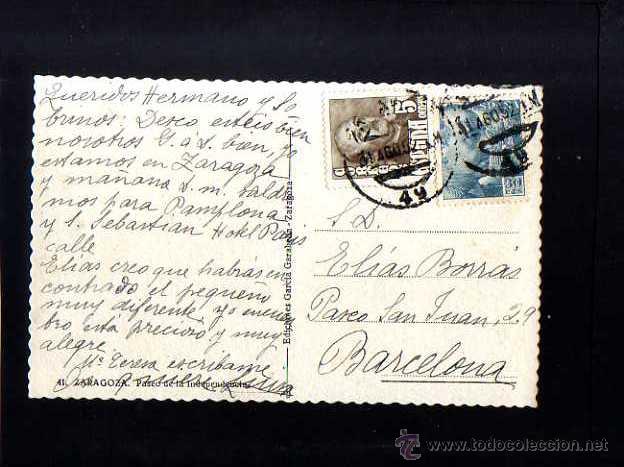 Queridos Hermano y So
brinos: Deseo esteis bien
nosotros G. a D. bien, ya
estamos en Zaragoza
y mañana D. m. saldre
mos para Pamplona
y S. Sebastian Hotel Paris
calle
Elias creo que habrás en
contrado el pequeño
muy diferente, yo encuen
tro está precioso y muy
alegre.
Mª Teresa escribame
41. ZARAGOZA. Paseo de la Independencia
Ediciones García Garrabella - Zaragoza
31 AGO 52
49
S. D.
Elías Borrás
Paseo San Juan, 29
Barcelona
todocoleccion
www.todocoleccion.net